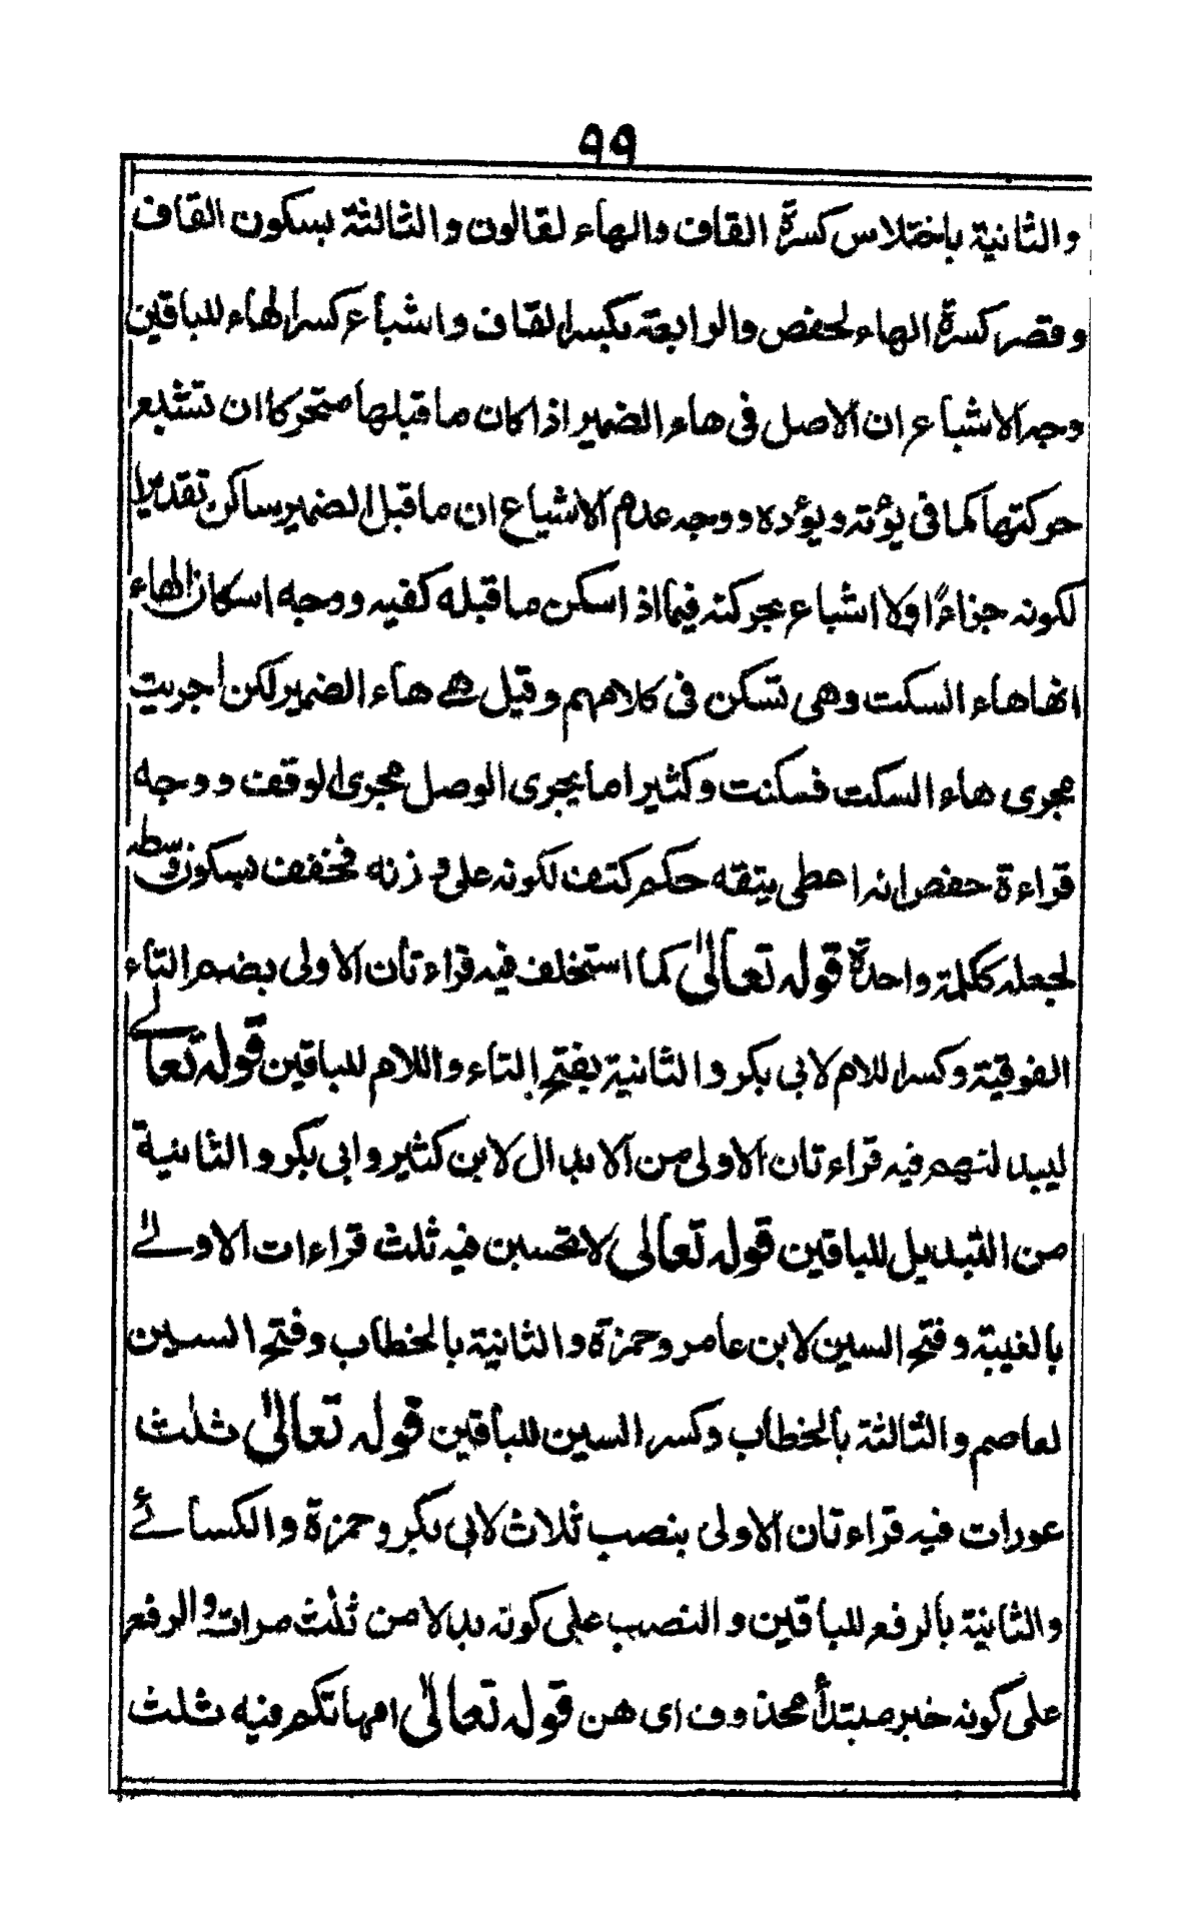 ٩٩
والثانية باختلاس كسرة القاف والهاء لقالون والثالثة بسكون القاف
وقصر كسرة الهاء لحفص والرابعة بكسر القاف واشباع كسر الهاء للباقين
وجه الاشباع ان الاصل فى هاء الضمير اذا كان ما قبلها متحركا ان تشبع
حركتها كما فى يؤته ويؤده ووجه عدم الاشباع ان ما قبل الضمير ساكن تقديرا
لكونه جزاءً ولا اشباع بحركته فيما اذا سكن ما قبله كفيه ووجه اسكان الهاء
انها هاء السكت وهى تسكن فى كلامهم وقيل هے هاء الضمير لكن اجريت
مجرى هاء السكت فسكنت وكثيرا ما يجرى الوصل مجرى الوقف ووجه
قراءة حفص انه اعطى يتقه حكم كتف لكونه على وزنه فخفف بسكون وسطه
لجعله ككلمة واحدة قوله تعالىٰ كما استخلف فيه قراءتان الاولى بضم التاء
الفوقية وكسر اللام لابى بكر والثانية بفتح التاء واللام للباقين قوله تعالے
ليبدلنهم فيه قراءتان الاولى من الابدال لابن كثير وابى بكر والثانية
من التبديل للباقين قوله تعالى لا تحسبن فيه ثلث قراءات الاولے
بالغيبة وفتح السين لابن عامر وحمزة والثانية بالخطاب وفتح السين
لعاصم والثالثة بالخطاب وكسر السين للباقين قوله تعالىٰ ثلث
عورات فيه قراءتان الاولى بنصب ثلاث لابى بكر وحمزة والكسائے
والثانية بالرفع للباقين والنصب على كونه بدلا من ثلث مرات والرفع
على كونه خبر مبتدأ محذوف اى هن قوله تعالىٰ امهاتكم فيه ثلث